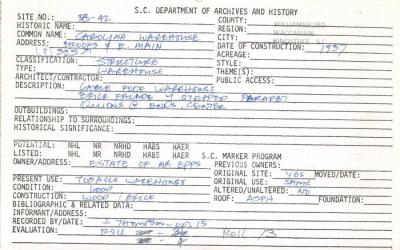 S.C. DEPARTMENT OF ARCHIVES AND HISTORY
SITE NO.: 38-42 COUNTY: WILLIAMSBURG
HISTORIC NAME: REGION: WACCAMAW
COMMON NAME: CAROLINA WAREHOUSE CITY: KINGSTREE S.C.
ADDRESS: BROOKS & E. MAIN DATE OF CONSTRUCTION: 1937
ACREAGE:
CLASSIFICATION: STRUCTURE STYLE:
TYPE: WAREHOUSE THEME(S):
ARCHITECT/CONTRACTOR: PUBLIC ACCESS:
DESCRIPTION: GABLE ROOF WAREHOUSE
BRICK FACADE W STEPPED PARAPET
@ ENDS CENTER
OUTBUILDINGS:
RELATIONSHIP TO SURROUNDINGS:
HISTORICAL SIGNIFICANCE:
POTENTIAL: NHL NR NRHD HABS HAER
LISTED: NHL NR NRHD HABS HAER S.C. MARKER PROGRAM
OWNER/ADDRESS: ESTATE OF EPPS PREVIOUS OWNERS:
ORIGINAL SITE: YES MOVED/DATE:
PRESENT USE: TOBACCO WAREHOUSE ORIGINAL USE: SAME
CONDITION: GOOD ALTERED/UNALTERED: NO
CONSTRUCTION: WOOD/BRICK ROOF: ASPH FOUNDATION:
BIBLIOGRAPHIC & RELATED DATA:
INFORMANT/ADDRESS:
RECORDED BY/DATE: J. THOMPSON 15
EVALUATION: ROLL Roll 13